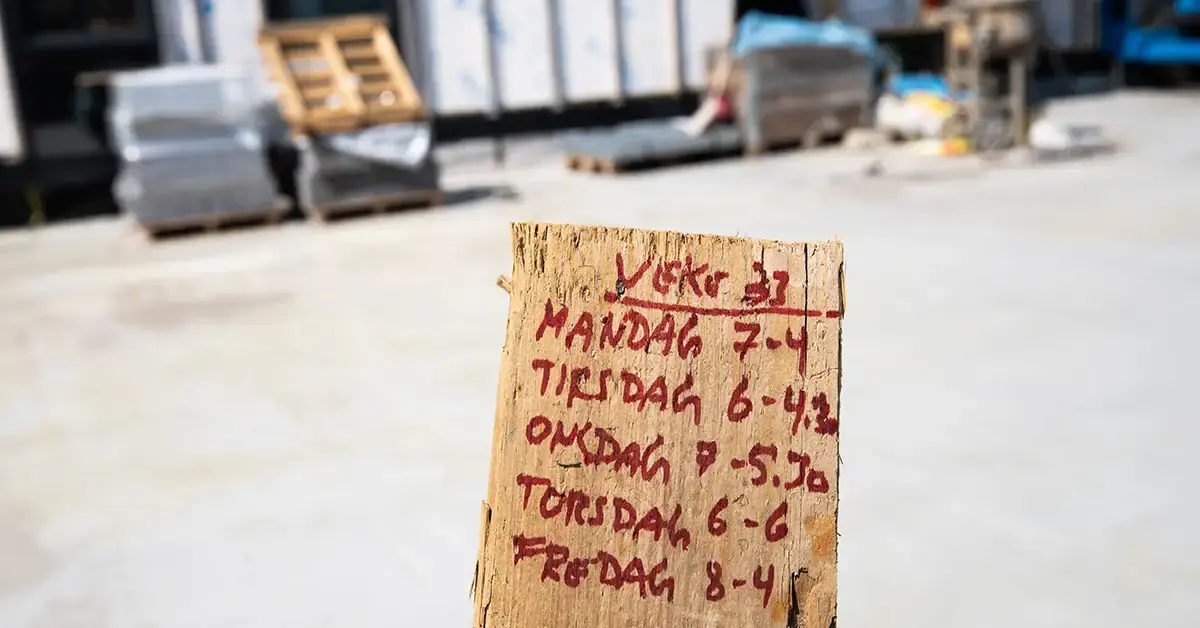 VEKE 33
MANDAG 7-4
TIRSDAG 6-4.30
ONSDAG 7-5.30
TORSDAG 6-6
FREDAG 8-4